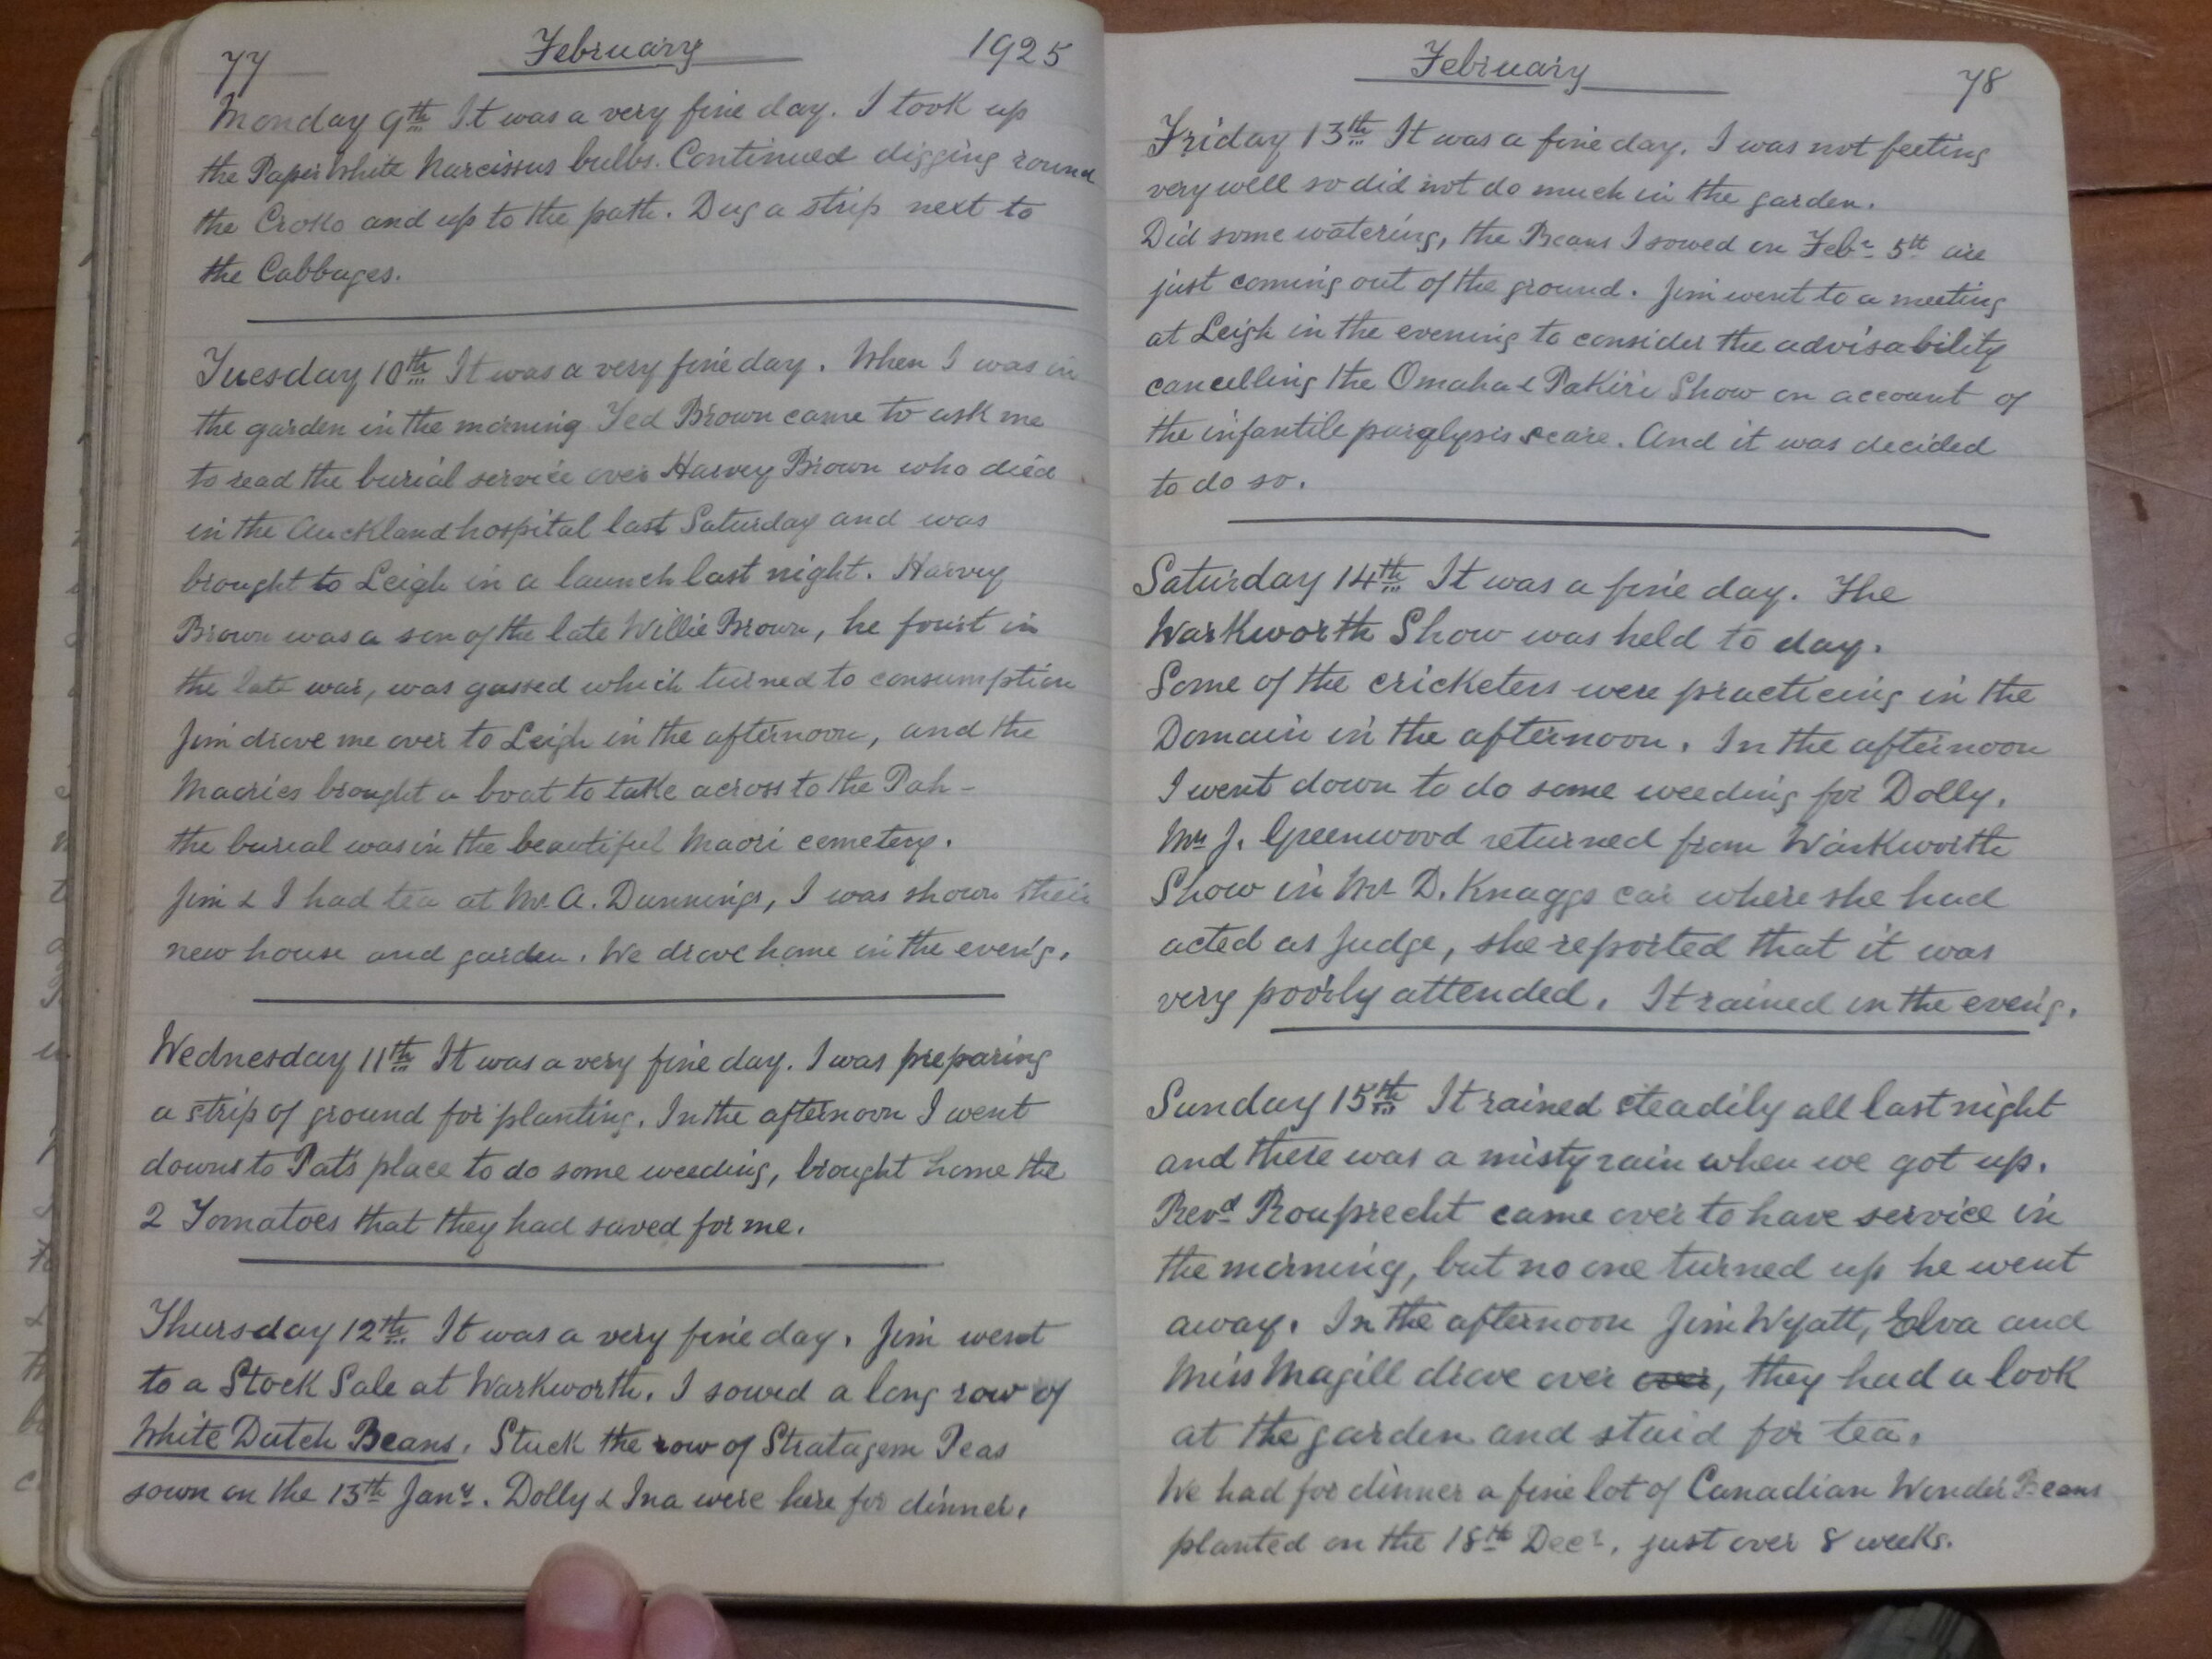 77 February 1925
Monday 9th It was a very fine day. I took up
the Paper White Narcissus bulbs. Continued digging round
the Croko and up to the path. Dug a strip next to
the Cabbages.
Tuesday 10th It was a very fine day. When I was in
the garden in the morning Ted Brown came to ask me
to read the burial service over Harvey Brown who died
in the Auckland hospital last Saturday and was
brought to Leigh in a launch last night. Harvey
Brown was a son of the late Willie Brown, he fourt in
the late war, was gassed which turned to consumption
Jim drove me over to Leigh in the afternoon, and the
Maories brought a boat to take across to the Pah -
the burial was in the beautiful Maori cemetery.
Jim & I had tea at Mr A. Dunnings, I was shown their
new house and garden. We drove home in the even'g.
Wednesday 11th It was a very fine day. I was preparing
a strip of ground for planting. In the afternoon I went
down to Pat's place to do some weeding, brought home the
2 Tomatoes that they had saved for me.
Thursday 12th It was a very fine day. Jim went
to a Stock Sale at Warkworth. I sowed a long row of
White Dutch Beans. Stuck the row of Stratagem Peas
sown on the 13th Jany. Dolly & Ina were here for dinner.
February 78
Friday 13th It was a fine day. I was not feeling
very well so did not do much in the garden.
Did some watering, the Beans I sowed on Febr 5th are
just coming out of the ground. Jim went to a meeting
at Leigh in the evening to consider the advisability
cancelling the Omaha & Pakiri Show on account of
the infantile paralysis scare. And it was decided
to do so.
Saturday 14th It was a fine day. The
Warkworth Show was held to day.
Some of the cricketers were practicing in the
Domain in the afternoon. In the afternoon
I went down to do some weeding for Dolly.
Mrs J. Greenwood returned from Warkworth
Show in Mr D. Knaggs car where she had
acted as Judge, she reported that it was
very poorly attended. It rained in the even'g.
Sunday 15th It rained steadily all last night
and there was a misty rain when we got up.
Revd Rouprecht came over to have service in
the morning, but no one turned up he went
away. In the afternoon Jim Wyatt, Elva and
Miss Magill drove over over, they had a look
at the garden and staid for tea.
We had for dinner a fine lot of Canadian Wonder Beans
planted on the 18th Decr. just over 8 weeks.